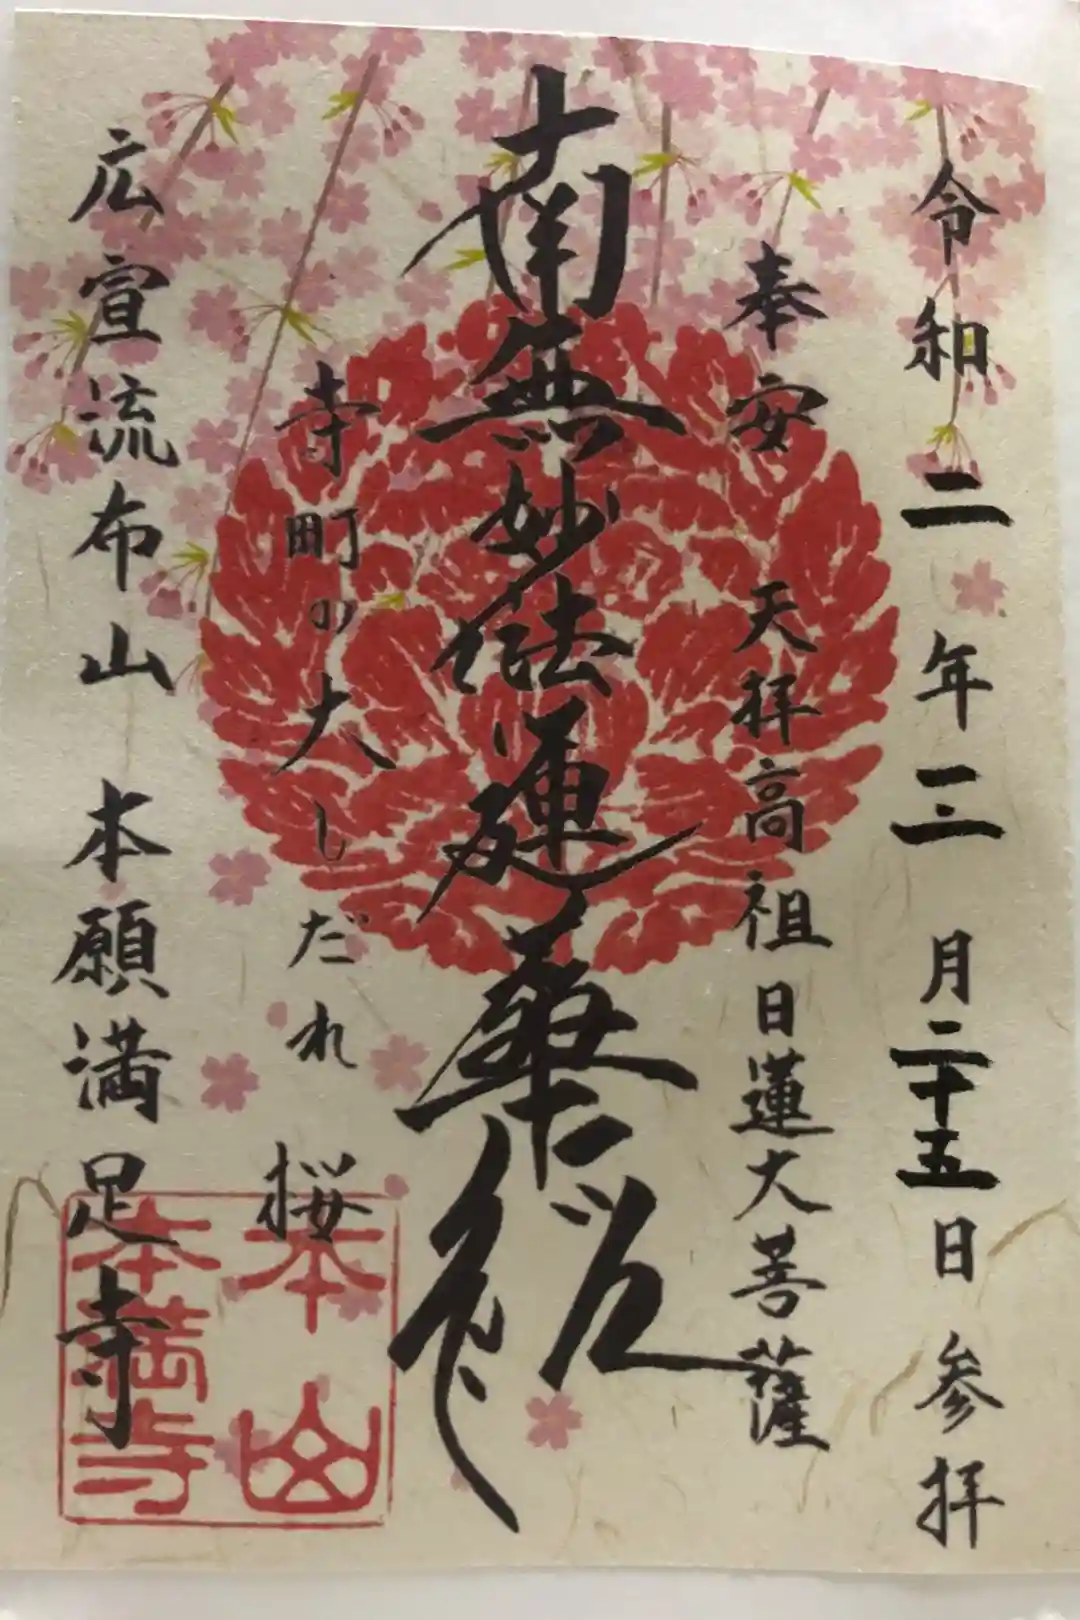 令和二年三月二十五日参拝
奉安 天拝高祖日蓮大菩薩
南無妙法蓮華経
寺町の大しだれ桜
広宣流布山 本願満足寺
本山
本満寺